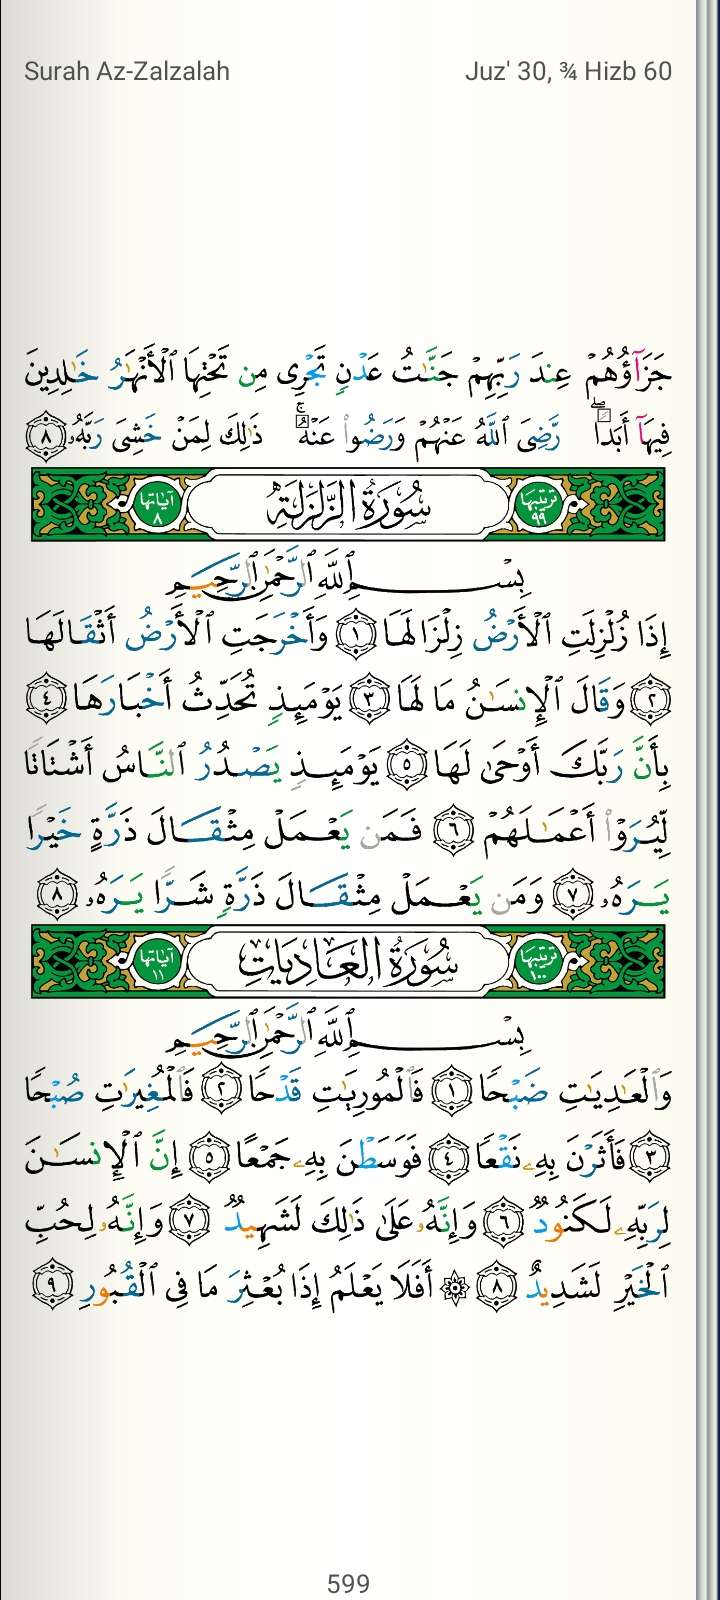 Surah Az-Zalzalah
Juz' 30, ¾ Hizb 60
جَزَآؤُهُمْ عِندَ رَبِّهِمْ جَنَّـٰتُ عَدْنٍ تَجْرِى مِن تَحْتِهَا ٱلْأَنْهَـٰرُ خَـٰلِدِينَ
فِيهَآ أَبَدًا ۖ رَّضِىَ ٱللَّهُ عَنْهُمْ وَرَضُوا۟ عَنْهُ ۚ ذَٰلِكَ لِمَنْ خَشِىَ رَبَّهُۥ ٨
ترتيبها ٩٩ سُورَةُ الزَّلْزَلَةِ آياتها ٨
بِسْمِ ٱللَّهِ ٱلرَّحْمَـٰنِ ٱلرَّحِيمِ
إِذَا زُلْزِلَتِ ٱلْأَرْضُ زِلْزَالَهَا ١ وَأَخْرَجَتِ ٱلْأَرْضُ أَثْقَالَهَا
٢ وَقَالَ ٱلْإِنسَـٰنُ مَا لَهَا ٣ يَوْمَئِذٍ تُحَدِّثُ أَخْبَارَهَا ٤
بِأَنَّ رَبَّكَ أَوْحَىٰ لَهَا ٥ يَوْمَئِذٍ يَصْدُرُ ٱلنَّاسُ أَشْتَاتًا
لِّيُرَوْا۟ أَعْمَـٰلَهُمْ ٦ فَمَن يَعْمَلْ مِثْقَالَ ذَرَّةٍ خَيْرًا
يَرَهُۥ ٧ وَمَن يَعْمَلْ مِثْقَالَ ذَرَّةٍ شَرًّا يَرَهُۥ ٨
ترتيبها ١٠٠ سُورَةُ العَادِيَاتِ آياتها ١١
بِسْمِ ٱللَّهِ ٱلرَّحْمَـٰنِ ٱلرَّحِيمِ
وَٱلْعَـٰدِيَـٰتِ ضَبْحًا ١ فَٱلْمُورِيَـٰتِ قَدْحًا ٢ فَٱلْمُغِيرَٰتِ صُبْحًا
٣ فَأَثَرْنَ بِهِۦ نَقْعًا ٤ فَوَسَطْنَ بِهِۦ جَمْعًا ٥ إِنَّ ٱلْإِنسَـٰنَ
لِرَبِّهِۦ لَكَنُودٌ ٦ وَإِنَّهُۥ عَلَىٰ ذَٰلِكَ لَشَهِيدٌ ٧ وَإِنَّهُۥ لِحُبِّ
ٱلْخَيْرِ لَشَدِيدٌ ٨ ۞ أَفَلَا يَعْلَمُ إِذَا بُعْثِرَ مَا فِى ٱلْقُبُورِ ٩
599